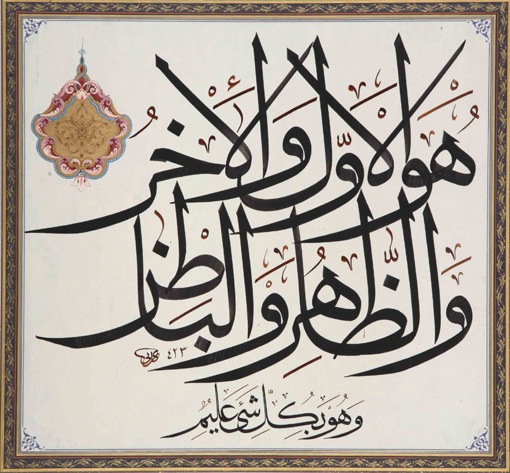 هُوَ الْأَوَّلُ وَالْآخِرُ
وَالظَّاهِرُ وَالْبَاطِنُ
وَهُوَ بِكُلِّ شَيْءٍ عَلِيمٌ
٤٢٣